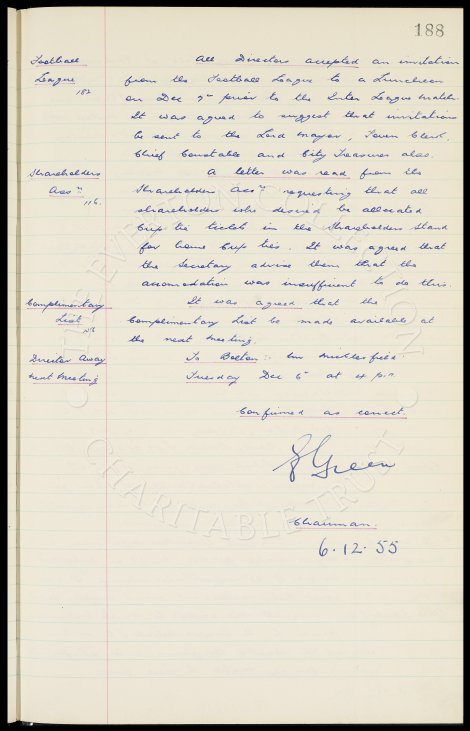 188
Football All Directors accepted an invitation
League from the Football League to a Luncheon
182 on Dec 7th prior to the Inter League match.
It was agreed to suggest that invitations
be sent to the Lord Mayor, Town Clerk,
Chief Constable and City Treasurer also.
Shareholders A letter was read from the
Assn. Shareholders Assn. requesting that all
116. shareholders who desired be allocated
Cup tie tickets in the Shareholders Stand
for home Cup ties. It was agreed that
the Secretary advise them that the
accomodation was insufficient to do this.
Complimentary It was agreed that the
List Complimentary List be made available at
the next meeting.
Director Away To Bolton:- Mr Micklesfield.
Next Meeting Tuesday Dec 6th at 4 p.m.
Confirmed as correct.
Green
Chairman.
6.12.55
THE EVERTON COLLECTION
CHARITABLE TRUST